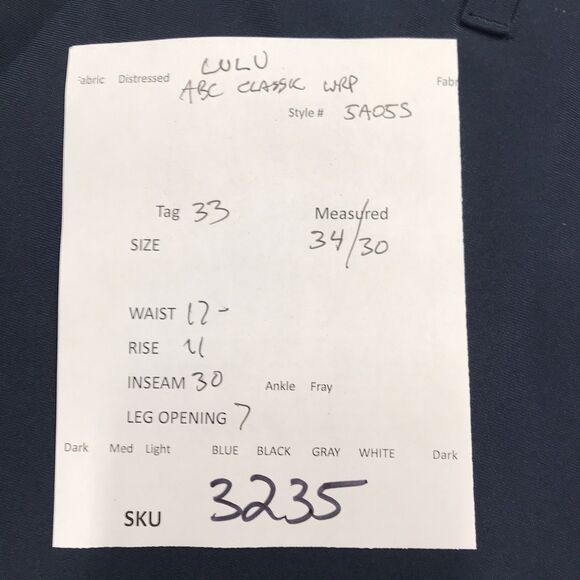 LULU
Fabric Distressed Fabr
ABC CLASSIC WRP
Style # 5A05S
Tag 33 Measured
SIZE 34/30
WAIST 17-
RISE 11
INSEAM 30 Ankle Fray
LEG OPENING 7
Dark Med Light BLUE BLACK GRAY WHITE Dark
SKU 3235